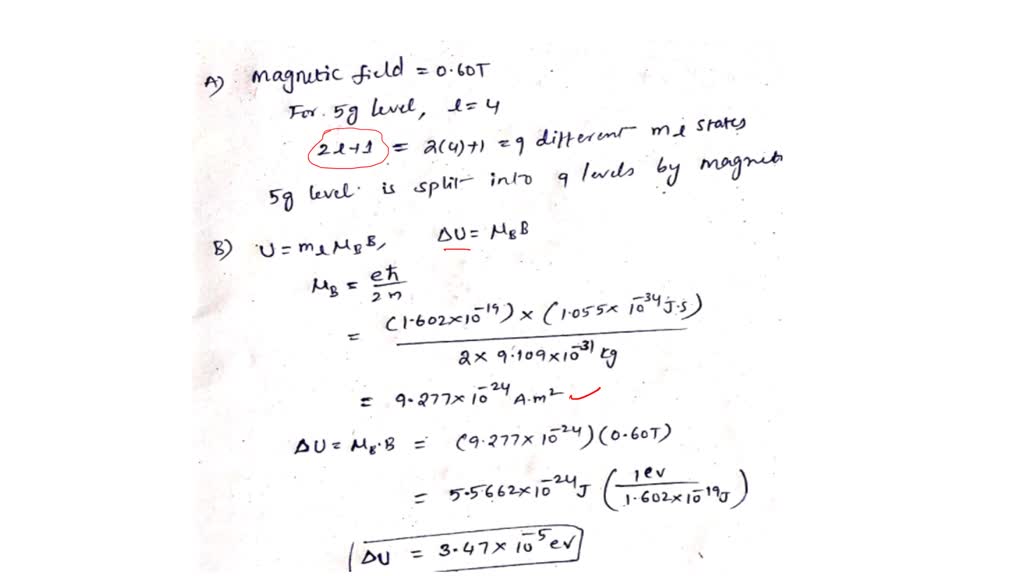 A) Magnetic field = 0.60T
For 5g level, l = 4
2l+1 = 2(4)+1 = 9 different ml states
5g level is split into 9 levels by magneti
B) U = ml μB B, ΔU = μB B
μB = eħ / 2m
= (1.602×10^-19) × (1.055×10^-34 J.s) / 2×9.109×10^-31 kg
= 9.277×10^-24 A.m²
ΔU = μB.B = (9.277×10^-24)(0.60T)
= 5.5662×10^-24 J (1ev / 1.602×10^-19 J)
ΔU = 3.47×10^-5 ev